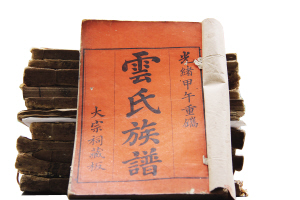 光緒甲午重編
雲氏族譜
大宗祠藏板